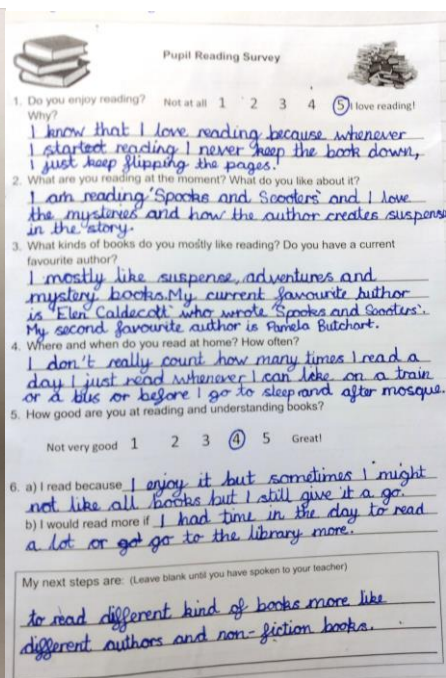 Pupil Reading Survey
1. Do you enjoy reading? Not at all 1 2 3 4 5 I love reading!
Why?
I know that I love reading because whenever
I started reading I never keep the book down,
I just keep flipping the pages.
2. What are you reading at the moment? What do you like about it?
I am reading 'Spooks and Scooters' and I love
the mysteries and how the author creates suspense
in the story.
3. What kinds of books do you mostly like reading? Do you have a current
favourite author?
I mostly like suspense, adventures and
mystery books. My current favourite author
is 'Elen Caldecott' who wrote 'Spooks and Scooters'.
My second favourite author is Pamela Butchart.
4. Where and when do you read at home? How often?
I don't really count how many times I read a
day I just read whenever I can like on a train
or a bus or before I go to sleep and after mosque.
5. How good are you at reading and understanding books?
Not very good 1 2 3 4 5 Great!
6. a) I read because I enjoy it but sometimes I might
not like all books but I still give it a go.
b) I would read more if I had time in the day to read
a lot or got go to the library more.
My next steps are: (Leave blank until you have spoken to your teacher)
to read different kind of books more like
different authors and non-fiction books.